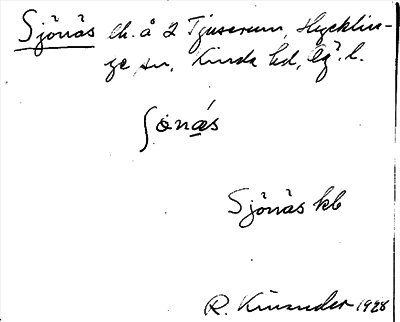 Sjönäs lh. å 2 Tjuserum, Hycklin-
ge sn, Kinda hd, Ög. l.
ʃönás
Sjönäs kb
R. Kinander 1928